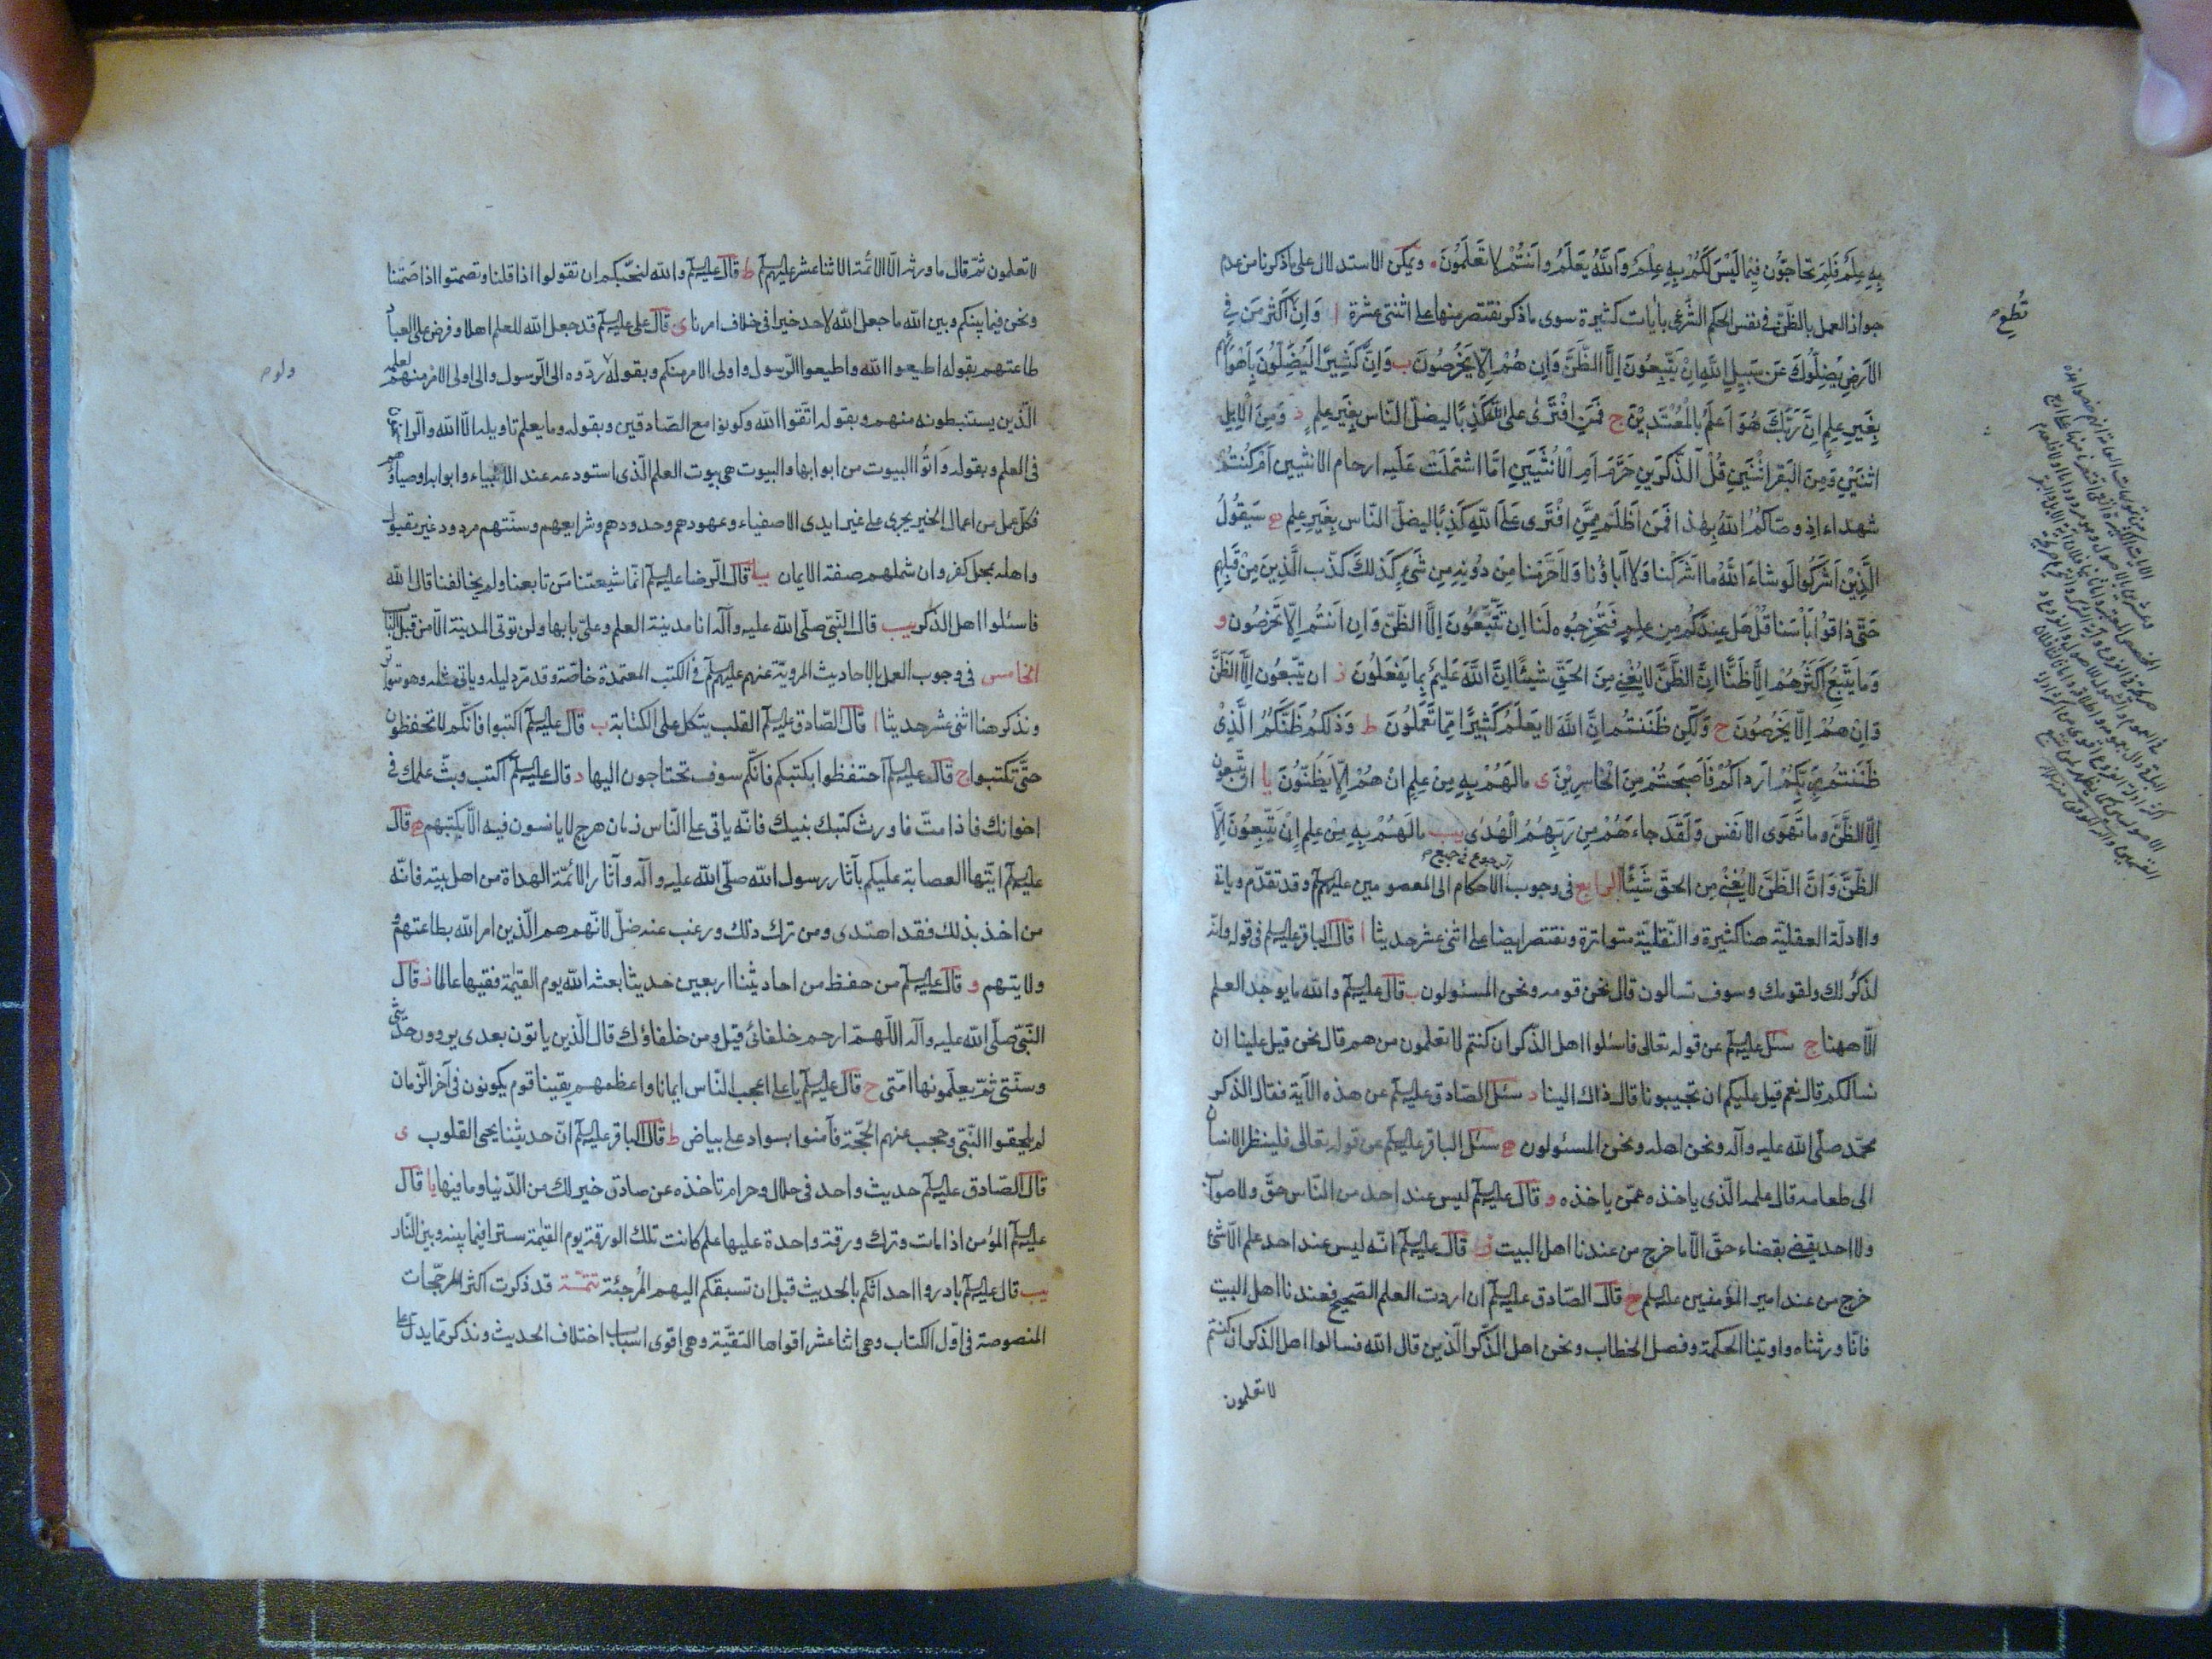 بِهِ عِلمٌ فَلِمَ تحاجّون فِيمَا لَيْسَ لَكُمْ بِهِ عِلْمٌ وَاَللَّهُ يَعْلَمُ وَاَنْتُمْ لا تَعْلَمُونَ. ويمكن الاستدلال على ما ذكرنا من عدم
جواز العمل بالظّنّ فى نفس الحكم الشّرعى بايات كثيرة سوى ما ذكر نقتصر منها على اثنتى عشرة ا وَاِن اكثر مَن فِي
الاَرضِ يُضِلّوكَ عَن سَبِيلِ اللَّهِ اِنْ يَتَّبِعُونَ اِلَّا الظَّنَّ وَاِن هُمْ اِلَّا يَخْرُصُونَ ب وَاِنَّ كَثِيرًا لَيُضِلُّونَ بِاَهْوَائِهم
بِغَيرِ عِلمٍ اِنَّ رَبَّكَ هُوَ اَعلَمُ بِالْمُعْتَدِيْنَ ج فَمَنِ افْتَرَىٰ على اللّٰهِ كَذِبًا ليضلّ النّاس بِغَيرِ عِلمٍ د وَمِنَ الْاِبِلِ
اثنَيْنِ وَمِنَ البَقَرِ اثْنَيْنِ قُلْ آلذّكَرَينِ حَرَّمَ اَمِ الْاُنْثَيَينِ اَمَّا اشتَمَلَتْ عَلَيه ارحام الانثيين اَمْ كُنتُمْ
شهداء اذ وصّاكُمُ اللّٰهُ بِهٰذا فَمَن اَظْلَمُ مِمَّنِ افْتَرَى عَلَى اللَّهِ كَذِبًا ليضلّ النّاس بِغَيرِ عِلمٍ ه سَيَقُولُ
الَّذِيْنَ اَشْرَكُوا لَو شاءَ اللَّهُ ما اَشرَكْنا وَلا اٰباؤُنا وَلا حَرَّمنا مِنْ دُونِهِ مِن شَىءٍ كَذٰلِكَ كَذّب الَّذِينَ مِنْ قَبْلِهِم
حَتّى ذاقوُا بَأسَنا قُلْ هَل عِندَكُم مِن عِلمٍ فَتُخْرِجُوه لَنا اِن تَتَّبِعُونَ اِلَّا الظّنّ وَاِن اَنتُم اِلّا تَخرُصُون و
وَما يَتَّبِعُ اَكثَرُهُم اِلَّا ظَنًّا اِنَّ الظَّنَّ لا يُغْنِي مِنَ الحَقِّ شَيْئًا اِنَّ اللَّهَ عَلِيمٌ بِما يَفعَلُونَ ز ان يتّبعُون اِلَّا الظَّنَّ
وَاِنْ هُمْ اِلّا يَخرُصُونَ ح وَلٰكِن ظَنَنتُم اَنَّ اللَّهَ لا يَعلَمُ كَثِيرًا مِمّا تَعْمَلُونَ ط وَذٰلِكُم ظَنُّكُمُ الَّذِىْ
ظَنَنتُم بِرَبِّكُمْ اَرداكُمْ فَاَصبَحتُم مِنَ الْخاسِرِيْنَ ى مالَهُمْ بِهِ مِنْ عِلمٍ اِنْ هُمْ اِلّا يَظُنّوُنَ يا ان يتّبعون
اِلَّا الظَّنَّ وما تَهْوَى الاَنفُس وَلَقَد جاءَهُمْ مِن رَبِّهِمُ الْهُدٰى يب مالَهُمْ بِهِ مِن عِلمٍ اِنْ يَتَّبِعُونَ اِلَّا
الظّنَّ وَاِنَّ الظّنَّ لا يُغْنِي مِن الحَقّ شَيْئًا الرابع فى وجوب الرجوع فى جميع الاحكام الى المعصومين عليهم السلم وقد تقدّم وياتى
والادلّة العقليّة هنا كثيرة والنّقليّة متواترة ونقتصر ايضا على اثنى عشر حديثا ا قال الباقر عليه السلم فى قوله وانّه
لذكر لك ولقومك وسوف تسالون قال نحن قومه ونحن المسئولون ب قال عليه السلم والله ما يوجد العلم
الّا ههنا ج سئل عليه السلم عن قوله تعالى فاسئلوا اهل الذّكر ان كنتم لا تعلمون من هم قال نحن قيل علينا ان
نسالكم قال نعم قيل عليكم ان تجيبونا قال ذاك الينا د سئل الصّادق عليه السلم عن هذه الآية فقال الذكر
محمّد صلّى الله عليه وآله ونحن اهله ونحن المسئولون ه سئل الباقر عليه السلم عن قوله تعالى فلينظر الانسان
الى طعامه قال علمه الّذى ياخذه عمّن ياخذه و قال عليه السلم ليس عند احد من النّاس حقّ ولا صواب
ولا احد يقضى بقضاء حقّ الّا ما خرج من عندنا اهل البيت ز قال عليه السلم انّه ليس عند احد علم الّا شىء
خرج من عند امير المؤمنين عليه السلم ح قال الصّادق عليه السلم ان اردت العلم الصّحيح فعندنا اهل البيت
فانّا ورثناه واوتينا الحكمة وفصل الخطاب ونحن اهل الذّكر الّذين قال الله فسالوا اهل الذكر ان كنتم
لا تعلمون
لا تعلمون ثمّ قال ما ورثه الّا الائمّة الاثنا عشر عليهم السلم ط قال عليه السلم والله لنحبّكم ان تقولوا اذا قلنا وتصمتوا اذا صمتنا
ونحن فيما بينكم وبين الله ما جعل الله لاحد خيرا فى خلاف امرنا ى قال على عليه السلم قد جعل الله للعلم اهلا وفرض على العباد
طاعتهم بقوله اطيعوا الله واطيعوا الرّسول واولى الامر منكم وبقوله ردّوه الى الرّسول والى اولى الامر منهم لعلمه
الّذين يستنبطونه منهم وبقوله اتّقوا الله وكونوا مع الصّادقين وبقوله وما يعلم تاويله الّا الله والرّاسخون
فى العلم وبقوله وَاتوا البيوت من ابوابها والبيوت هى بيوت العلم الّذى استودعه عند الانبياء وابوابها اوصياؤهم
فكلّ عمل من اعمال الخير يجرى على غير ايدى الاصفياء وعهودهم وحدودهم وشرايعهم وسنّتهم مردود غير مقبول
واهله بمحل كفر وان شملهم صفة الايمان يا قال الرّضا عليه السلم انّما شيعتنا من تابعنا ولم يخالفنا قال الله
فاسئلوا اهل الذكر يب قال النّبى صلّى الله عليه وآله انا مدينة العلم وعلىّ بابها ولن توتى المدينة الّا من قبل الباب
الخامس فى وجوب العمل بالاحاديث المرويّة عنهم عليهم السلم فى الكتب المعتمدة خاصّة وقد مرّ دليله وياتى مثله وهو متواتر
ونذكر هنا اثنى عشر حديثا ا قال الصّادق عليه السلم القلب يتكل على الكتابة ب قال عليه السلم اكتبوا فانّكم لا تحفظون
حتّى تكتبوا ج قال عليه السلم احتفظوا بكتبكم فانّكم سوف تحتاجون اليها د قال عليه السلم اكتب وبثّ علمك فى
اخوانك فاذا متّ فاورث كتبك بنيك فانّه ياتى على النّاس زمان هرج لا يانسون فيه الّا بكتبهم ه قال
عليه السلم ايّتها العصابة عليكم بآثار رسول الله صلّى الله عليه وآله وآثار الائمّة الهداة من اهل بيته فانّه
من اخذ بذلك فقد اهتدى ومن ترك ذلك ورغب عنه ضلّ لانّهم هم الّذين امر الله بطاعتهم و
ولايتهم و قال عليه السلم من حفظ من احاديثنا اربعين حديثا بعثه الله يوم القيٰمة فقيها عالما ز قال
النّبىّ صلّى الله عليه وآله اللّهمّ ارحم خلفائى قيل ومن خلفاؤك قال الّذين ياتون بعدى يروون حديثى
وسنّتى ثمّ يعلّمونها امّتى ح قال عليه السلم يا على اعجب النّاس ايمانا واعظمهم يقينا قوم يكونون فى آخر الزّمان
لم يلحقوا النّبى وحجب عنهم الحجّة فآمنوا بسواد على بياض ط قال الباقر عليه السلم انّ حديثنا يحيى القلوب ى
قال الصّادق عليه السلم حديث واحد فى حلال وحرام تاخذه عن صادق خير لك من الدّنيا وما فيها يا قال
عليه السلم المؤمن اذا مات وترك ورقة واحدة عليها علم كانت تلك الورقة يوم القيٰمة سترا فيما بينه وبين النّار
يب قال عليه السلم بادروا احداثكم بالحديث قبل ان تسبقكم اليهم المُرجئة تتمّة قد ذكرت اكثر المرجّحات
المنصوصة فى اوّل الكتاب وهى اثنا عشر اقواها التقيّة وهى اقوى اسباب اختلاف الحديث ونذكر ممّا يدلّ على
ولو